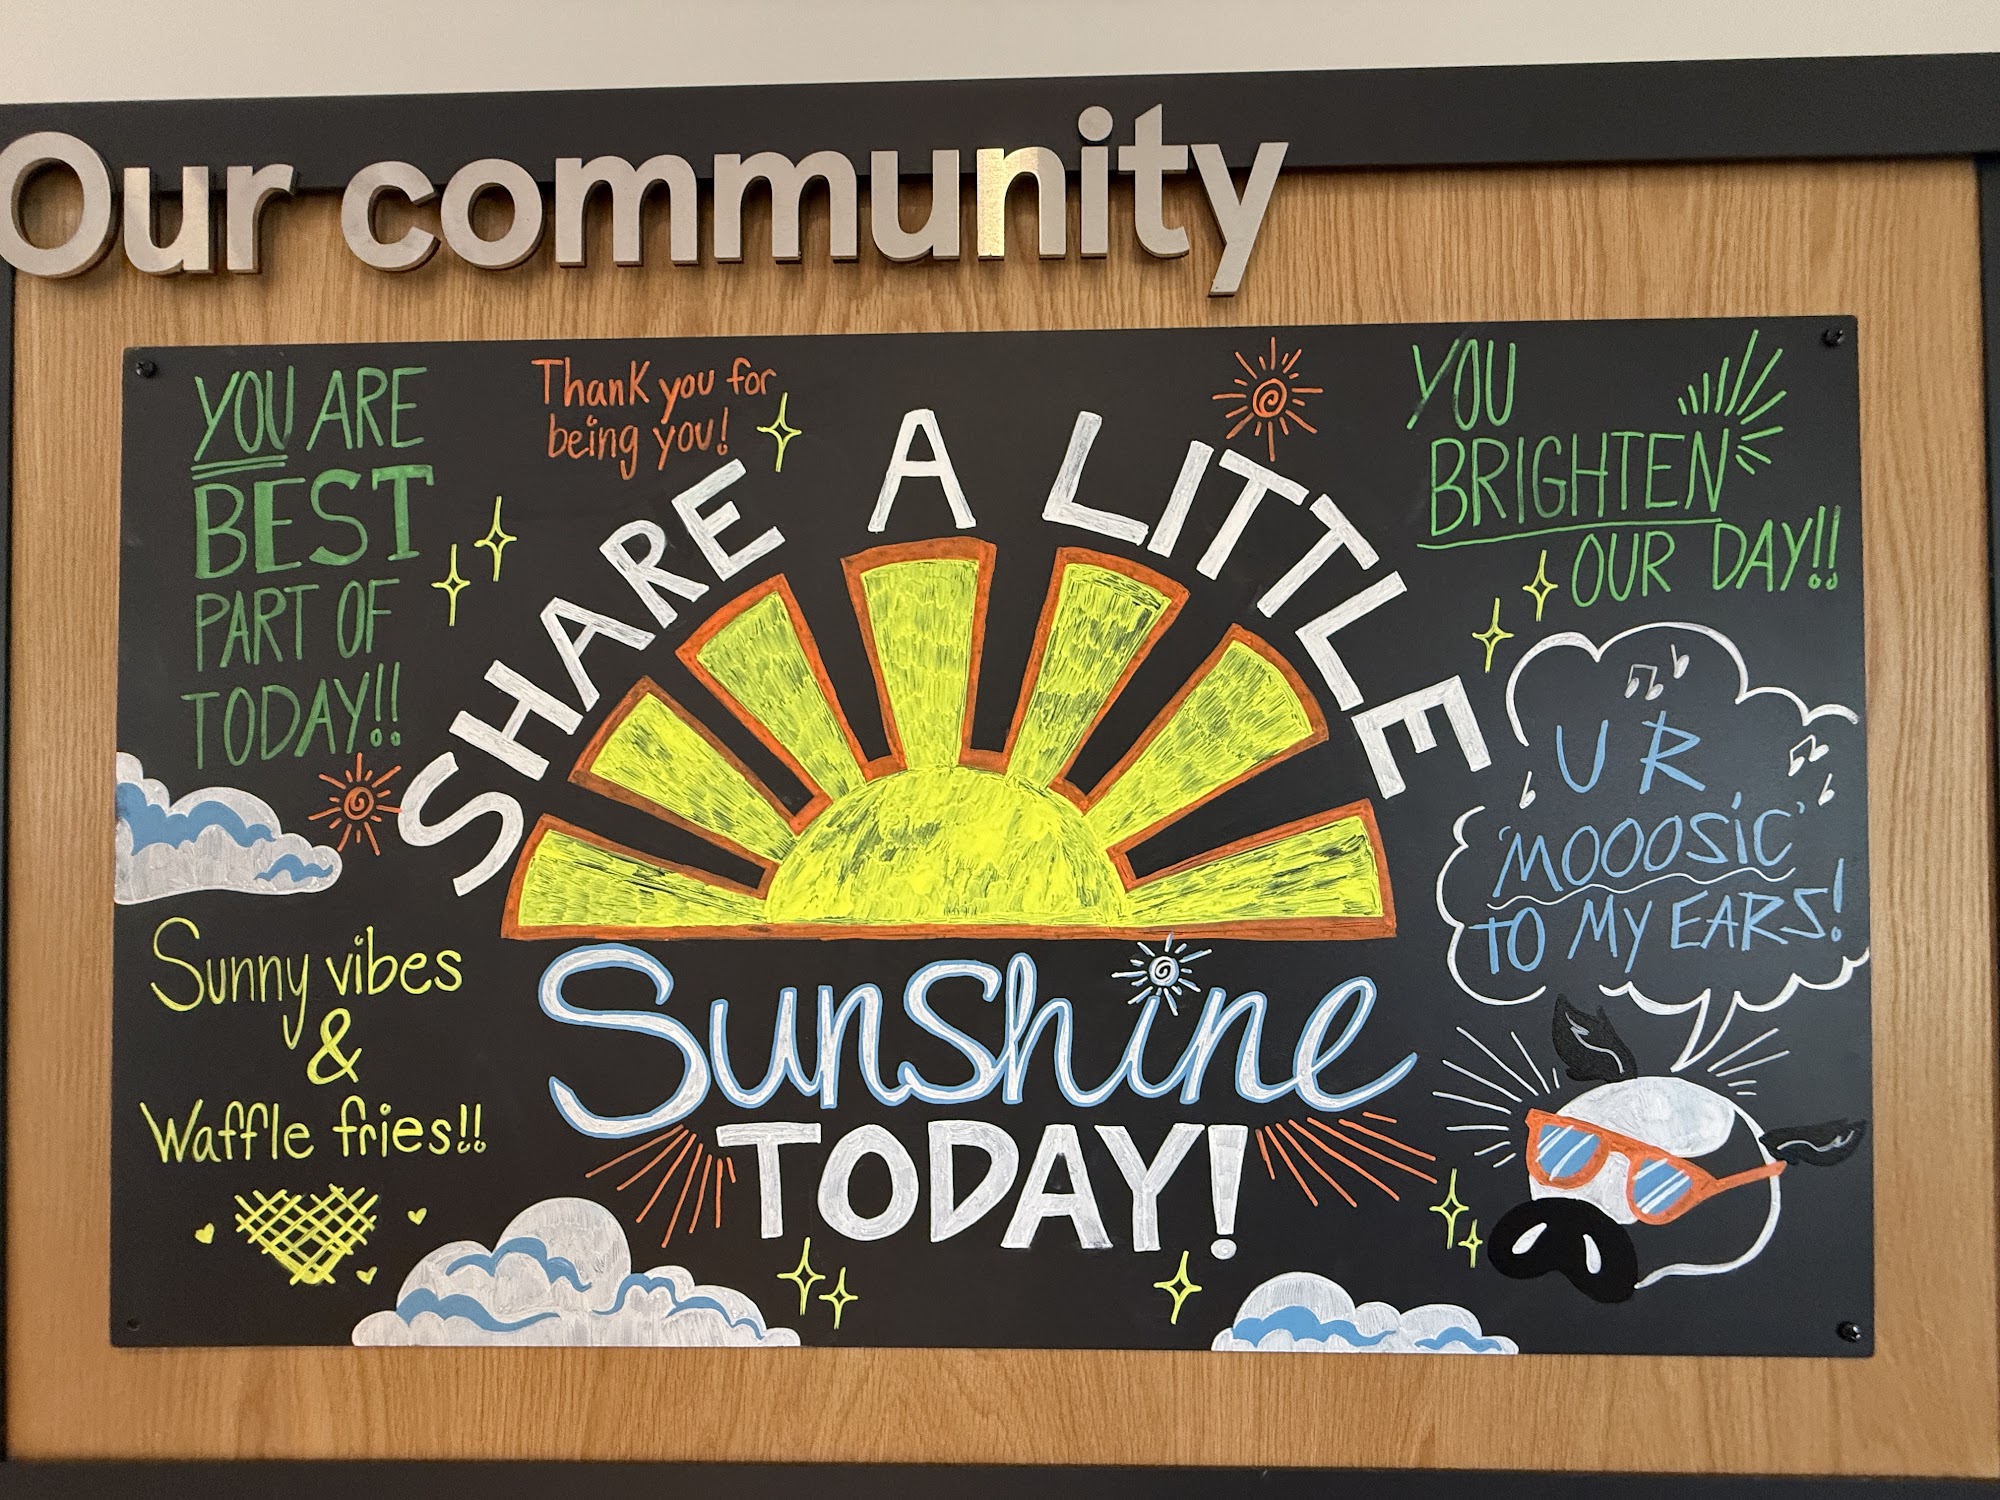 Our community
YOU ARE
BEST
PART OF
TODAY!!
Thank you for
being you!
YOU
BRIGHTEN
OUR DAY!!
SHARE A LITTLE
Sunshine
TODAY!
Sunny vibes
&
Waffle fries!!
U R
'MOOOSIC'
TO MY EARS!